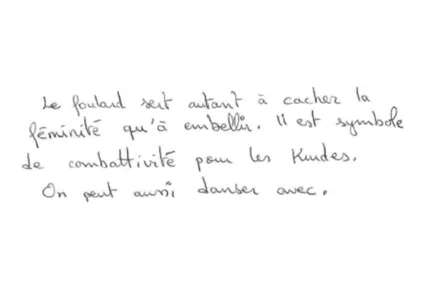 Le foulard sert autant à cacher la
féminité qu'à embellir. Il est symbole
de combattivité pour les Kurdes.
On peut aussi danser avec.